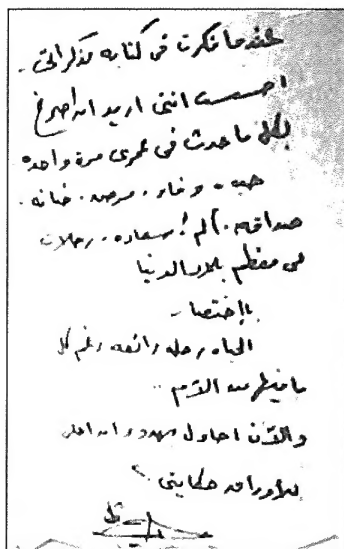 عندما فكرت في كتابة مذكراتي ..
احسست انني اريد ان اصرخ
بكل ما حدث في عمري مرة واحده
حب . وفاء . مرض . خيانه .
صداقه . ألم ! سعاده . رحلات
في معظم بلاد الدنيا
بإختصار ..
الحياه رحله رائعه رغم كل
ما فيها من آلام ..
والآن احاول بهدوء ان
للأوراق حكايتي